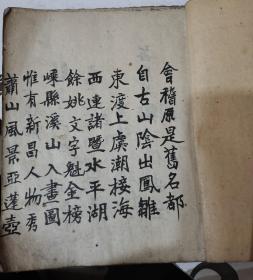 會稽原是舊名都
自古山陰出鳳雛
東渡上虞潮接海
西連諸暨水平湖
餘姚文字魁金榜
嵊縣溪山入畫圖
惟有新昌人物秀
蕭山風景亞蓬壺